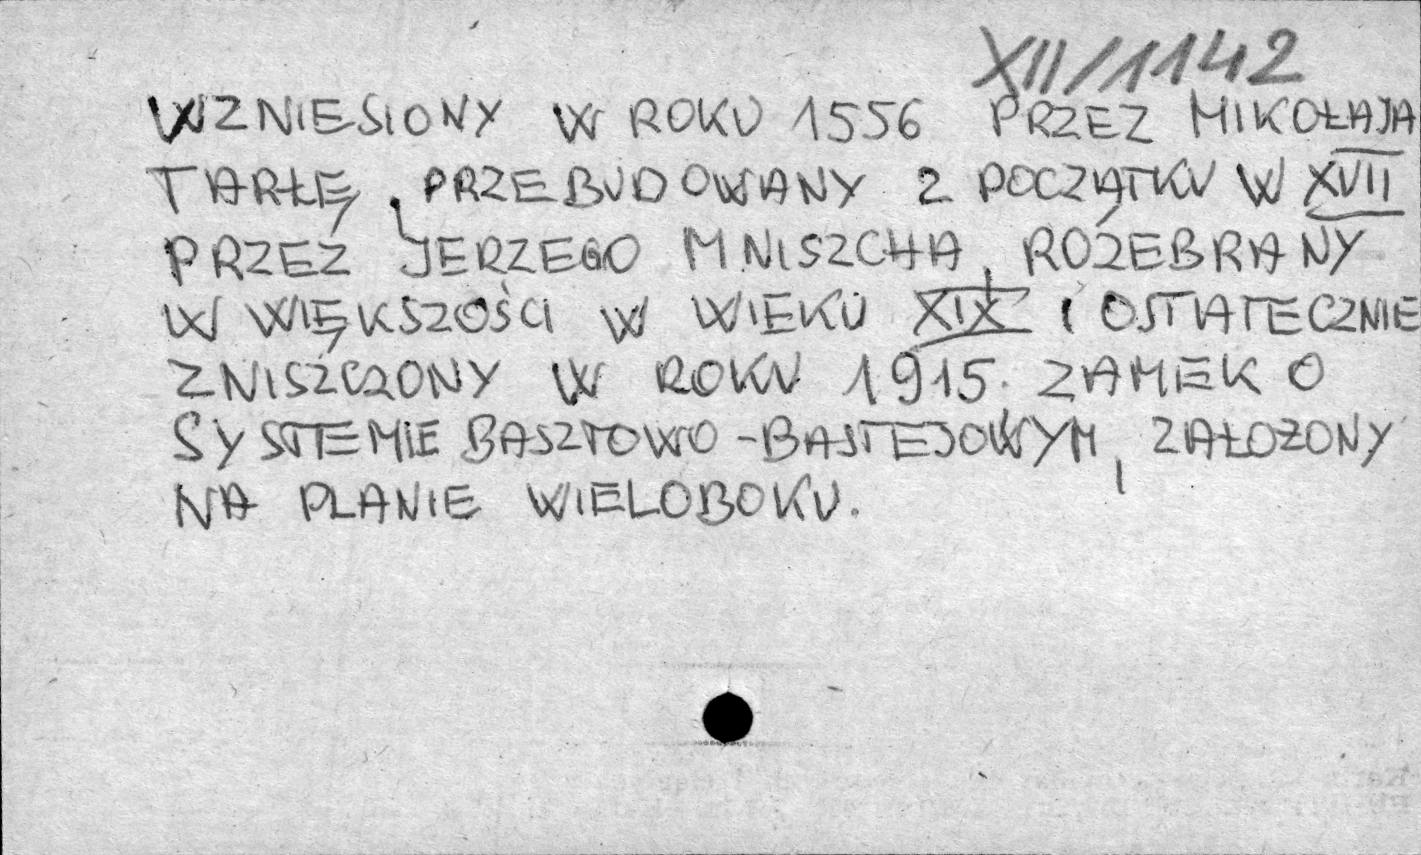 XII/1142
WZNIESIONY W ROKU 1556 PRZEZ MIKOŁAJA
TARŁĘ, PRZEBUDOWANY Z POCZĄTKU W XVII
PRZEZ JERZEGO MNISZCHA, ROZEBRANY
W WIĘKSZOŚCI W WIEKU XIX I OSTATECZNIE
ZNISZCZONY W ROKU 1915. ZAMEK O
SYSTEMIE BASZTOWO-BASTEJOWYM, ZAŁOŻONY
NA PLANIE WIELOBOKU.